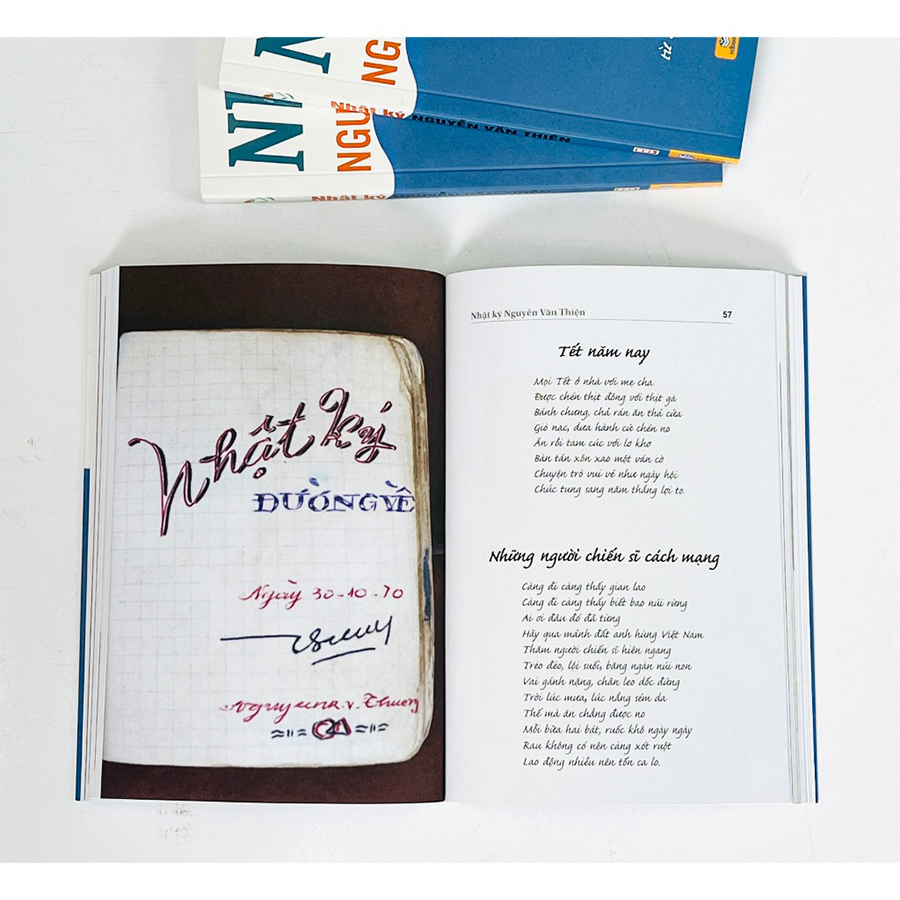 NH
NGƯ
NH
NG
từ
Nhật ký NGUYỄN VĂN THIỆN
Nhật ký
Nhật Ký
ĐƯỜNG VỀ
Ngày 30-10-70
Nhật ký Nguyễn Văn Thiện 57
Tết năm nay
Mọi Tết ở nhà với mẹ cha
Được chén thịt đông với thịt gà
Bánh chưng, chả rán ăn thả cửa
Giò nạc, dưa hành cứ chén no
Ăn rồi tam cúc với lơ khơ
Bàn tán xôn xao một ván cờ
Chuyện trò vui vẻ như ngày hội
Chúc tụng sang năm thắng lợi to.
Những người chiến sĩ cách mạng
Càng đi càng thấy gian lao
Càng đi càng thấy biết bao núi rừng
Ai ơi đâu đó đã từng
Hãy qua mảnh đất anh hùng Việt Nam
Thăm người chiến sĩ hiên ngang
Trèo đèo, lội suối, băng ngàn núi non
Vai gánh nặng, chân leo dốc đứng
Trời lúc mưa, lúc nắng sém da
Thế mà ăn chẳng được no
Mỗi bữa hai bát, ruốc khô ngày ngày
Rau không có nên càng xót ruột
Lao động nhiều nên tốn ca lo.